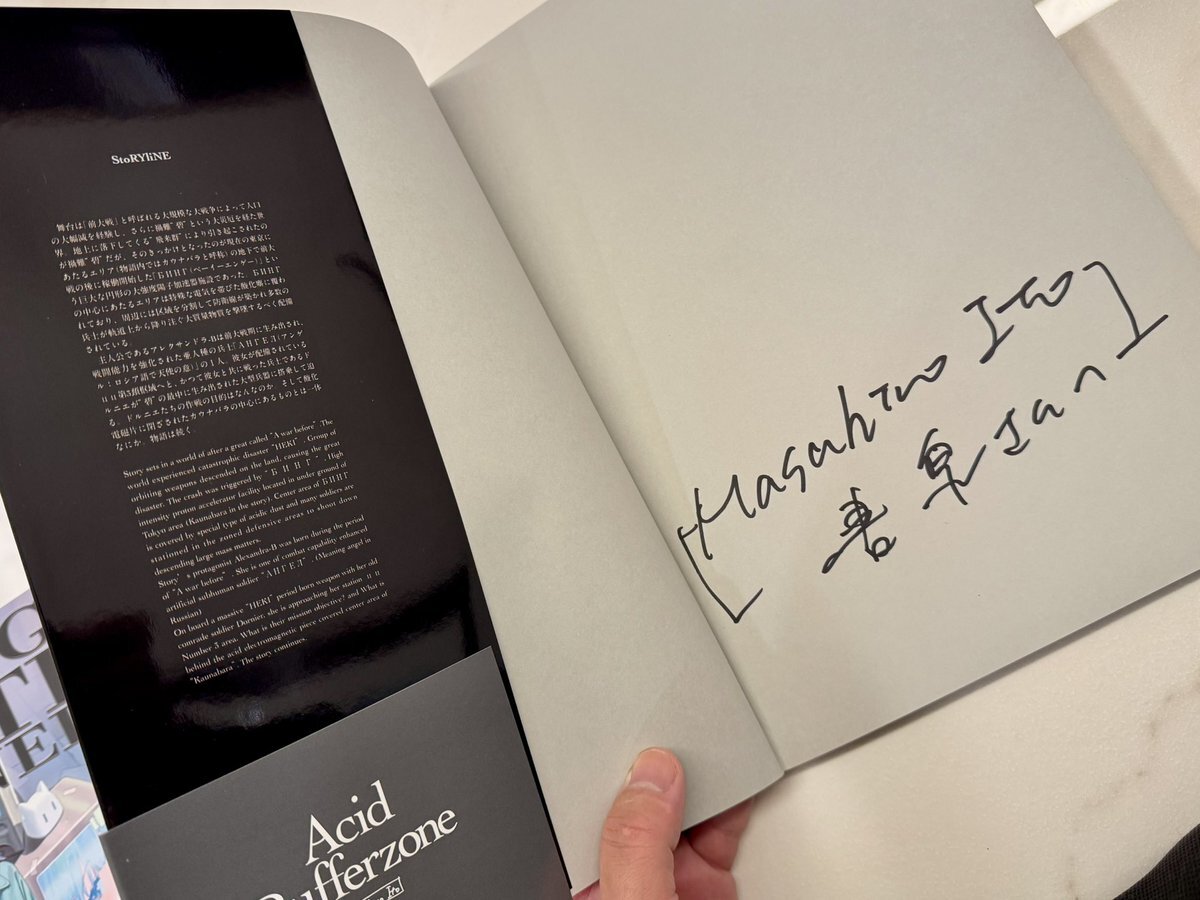 StoRYliNE
舞台は「前大戦」と呼ばれる大規模な大戦争によって人口
の大幅減を経験し、さらに禍難“碧”という大災厄を経た世
界。地上に落下してくる“飛来群”により引き起こされたの
が禍難“碧”だが、そのきっかけとなったのが現在の東京に
あたるエリア(物語内ではカウナバラと呼称)の地下で前大
戦の後に稼働開始した「БИНГ(ベーイーエンゲー)」とい
う巨大な円形の大強度陽子加速器施設であった。БИНГ
の中心にあたるエリアは特殊な電気を帯びた酸化塵に覆わ
れており、周辺には区域を分割して防衛線が築かれ多数の
兵士が軌道上から降り注ぐ大質量物質を撃墜するべく配備
されている。
主人公であるアレクサンドラ-Bは前大戦期に生み出され、
戦闘能力を強化された亜人種の兵士「АНГЕЛ(アンゲ
ル:ロシア語で天使の意)」の1人。彼女が配備されている
第3鎖駅域へと、かつて彼女と共に戦った兵士であるド
ルニエが“碧”の最中に生み出された大型兵器に搭乗して迫
る。ドルニエたちの作戦の目的はなんなのか。そして酸化
電磁片に閉ざされたカウナバラの中心にあるものとは一体
なにか。物語は続く。
Story sets in a world of after a great called "A war before". The
world experienced catastrophic disaster "HEKI". Group of
orbiting weapons descended on the land, causing the great
disaster. The crash was triggered by "БИНГ". High
intensity proton accelerator facility located in under ground of
Tokyo area (Kaunahara in the story). Center area of БИНГ
is covered by special type of acidic dust and many soldiers are
stationed in the zoned defensive areas to shoot down
descending large mass matters.
Story's protagonist Alexandra-B was born during the period
of "A war before". She is one of combat capability enhanced
artificial subhuman soldier "АНГЕЛ". (Meaning angel in
Russian)
On board a massive "HEKI" period born weapon with her old
comrade soldier Dornier, she is approaching her station
Number 3 area. What is their mission objective? and What is
behind the acid electromagnetic piece covered center area of
"Kaunahara". The story continues.
Acid
Bufferzone
Masahiro Ito
Jan